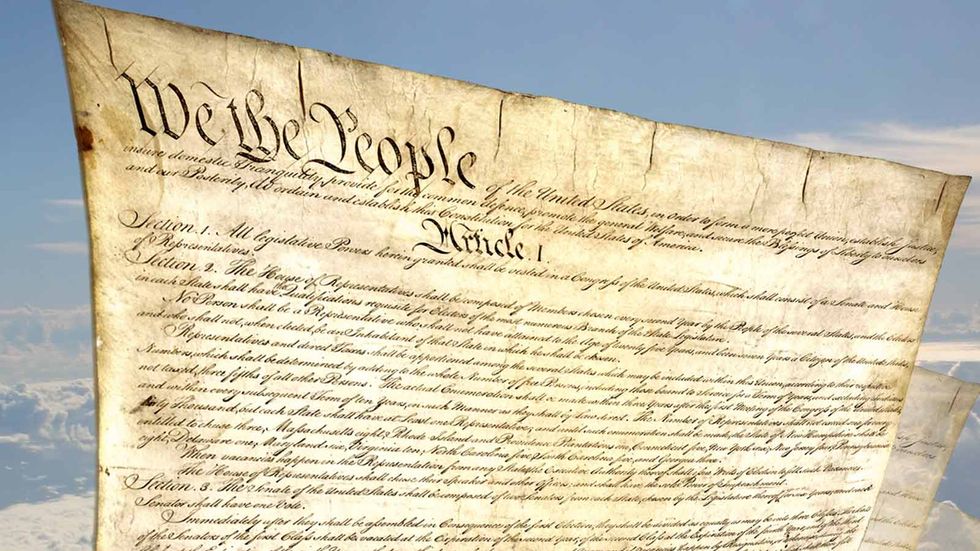 We the People of the United States, in order to form a more perfect Union, establish Justice,
insure domestic Tranquility, provide for the common defence, promote the general Welfare, and secure the Blessings of Liberty to ourselves
and our Posterity, do ordain and establish this Constitution for the United States of America.
Article I
Section 1. All legislative Powers herein granted shall be vested in a Congress of the United States, which shall consist of a Senate and House
of Representatives.
Section 2. The House of Representatives shall be composed of Members chosen every second Year by the People of the several States, and the Electors
in each State shall have Qualifications requisite for Electors of the most numerous Branch of the State Legislature.
No Person shall be a Representative who shall not have attained to the Age of twenty five Years, and been seven Years a Citizen of the United States,
and who shall not, when elected, be an Inhabitant of that State in which he shall be chosen.
Representatives and direct Taxes shall be apportioned among the several States which may be included within this Union, according to their respective
Numbers, which shall be determined by adding to the whole Number of free Persons, including those bound to Service for a Term of Years, and excluding Indians
not taxed, three fifths of all other Persons. The actual Enumeration shall be made within three Years after the first Meeting of the Congress of the United States,
and within every subsequent Term of ten Years, in such Manner as they shall by Law direct. The Number of Representatives shall not exceed one for every
thirty Thousand, but each State shall have at least one Representative; and until such enumeration shall be made, the State of New Hampshire shall be
entitled to chuse three, Massachusetts eight, Rhode Island and Providence Plantations one, Connecticut five, New York six, New Jersey four, Pennsylvania
eight, Delaware one, Maryland six, Virginia ten, North Carolina five, South Carolina five, and Georgia three.
When vacancies happen in the Representation from any State, the Executive Authority thereof shall issue Writs of Election to fill such Vacancies.
The House of Representatives shall chuse their Speaker and other Officers; and shall have the sole Power of Impeachment.
Section 3. The Senate of the United States shall be composed of two Senators from each State, chosen by the Legislature thereof for six Years; and each
Senator shall have one Vote.
Immediately after they shall be assembled in Consequence of the first Election, they shall be divided as equally as may be into three Classes. The Seats
of the Senators of the first Class shall be Vacated at the Expiration of the second Year, of the second Class at the Expiration of the fourth Year, and of the third